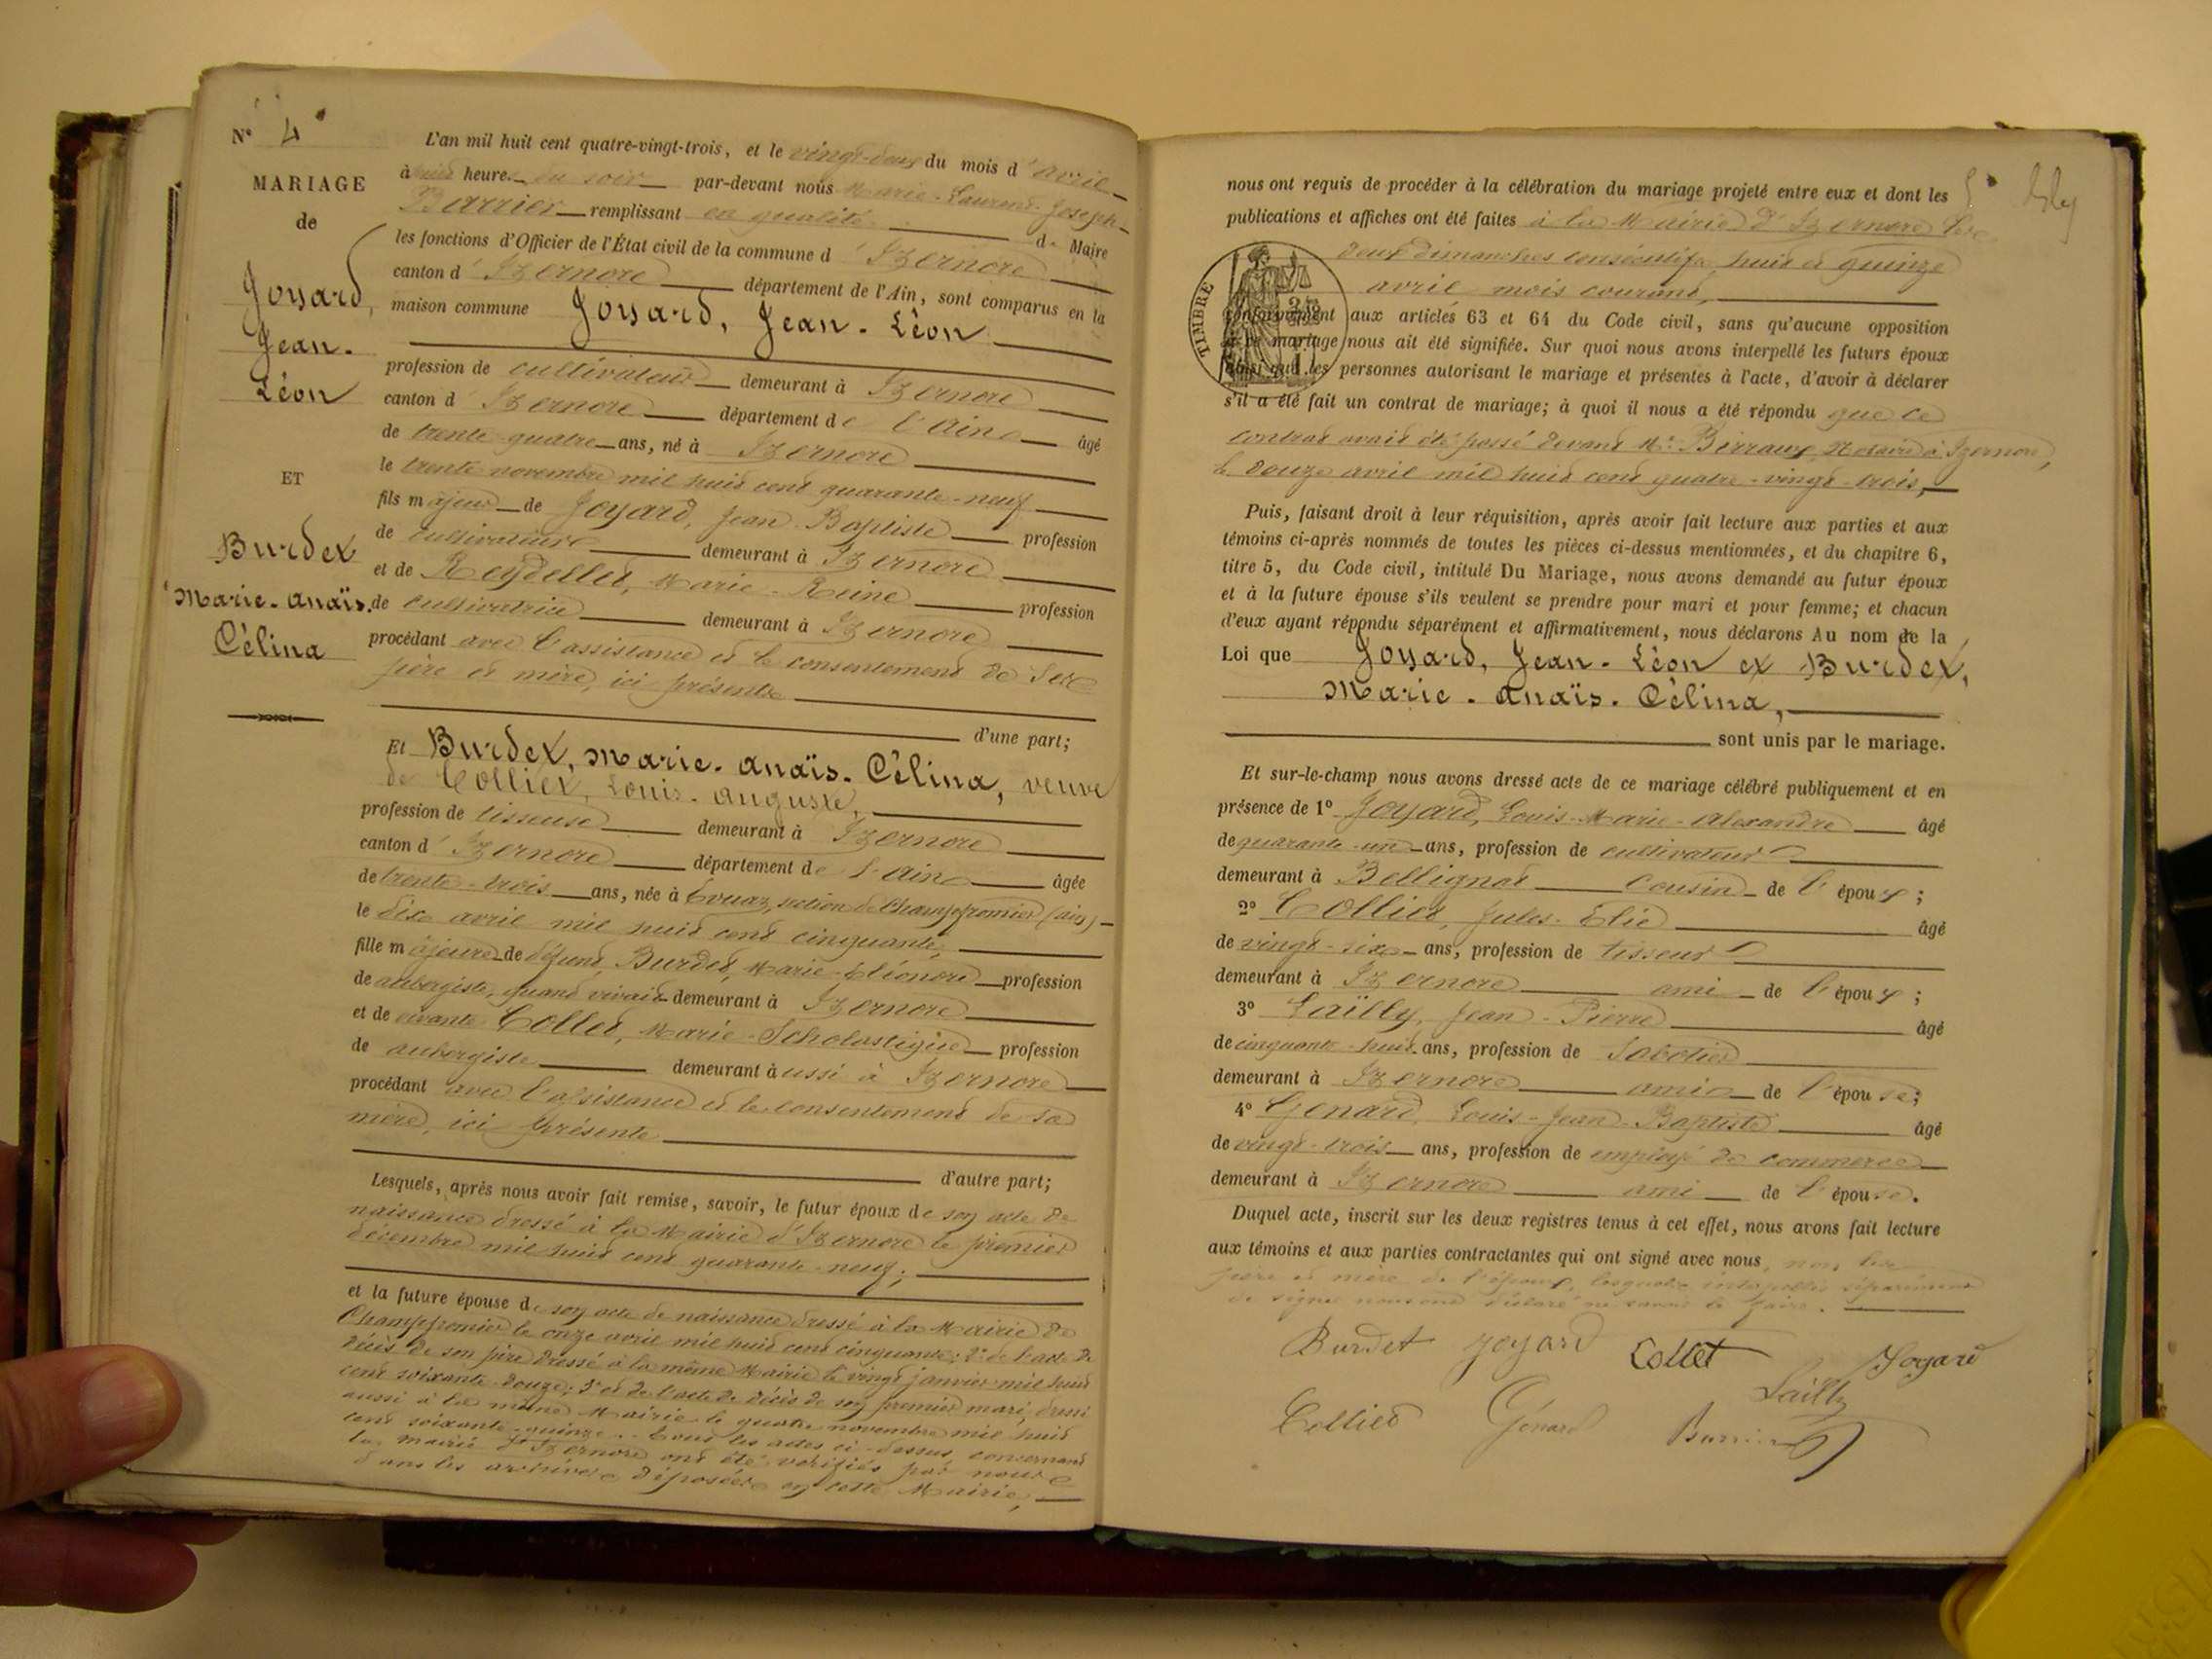 N° 4
MARIAGE
de
Joyard,
Jean-
Léon
ET
Burdet
Marie-Anaïs-
Célina
L'an mil huit cent quatre-vingt-trois, et le vingt-deux du mois d'avril
à huit heures du soir par-devant nous Marie-Laurent-Joseph-
Barrier remplissant en qualité de Maire
les fonctions d'Officier de l'État civil de la commune d'Izernore
canton d'Izernore département de l'Ain, sont comparus en la
maison commune Joyard, Jean-Léon
profession de cultivateur demeurant à Izernore
canton d'Izernore département de l'Ain âgé
de trente-quatre ans, né à Izernore
le trente novembre mil huit cent quarante-neuf
fils majeur de Joyard, Jean-Baptiste profession
de cultivateur demeurant à Izernore
et de Reydellet, Marie-Reine profession
de cultivatrice demeurant à Izernore
procédant avec l'assistance et le consentement de ses
père et mère, ici présents
d'une part;
Et Burdet, Marie-Anaïs-Célina, veuve
de Collier, Louis-Auguste,
profession de tisseuse demeurant à Izernore
canton d'Izernore département de l'Ain âgée
de trente-trois ans, née à section de Champfromier (Ain)
le dix avril mil huit cent cinquante,
fille majeure de défunt Burdet, Marie-Éléonore profession
de aubergiste, quand vivait demeurant à Izernore
et de vivante Collet, Marie-Scholastique profession
de aubergiste demeurant aussi à Izernore
procédant avec l'assistance et le consentement de sa
mère, ici présente
d'autre part;
Lesquels, après nous avoir fait remise, savoir, le futur époux de son acte de
naissance dressé à la Mairie d'Izernore le premier
décembre mil huit cent quarante-neuf;
et la future épouse de son acte de naissance dressé à la Mairie de
Champfromier le onze avril mil huit cent cinquante; 2° de l'acte de
décès de son père dressé à la même Mairie le vingt janvier mil huit
cent soixante-douze; 3° et de l'acte de décès de son premier mari, dressé
aussi à la même Mairie le quatre novembre mil huit
cent soixante-quinze. Tous les actes ci-dessus concernant
la Mairie d'Izernore ont été vérifiés par nous
dans les archives déposées en cette Mairie,
nous ont requis de procéder à la célébration du mariage projeté entre eux et dont les
publications et affiches ont été faites à la Mairie d'Izernore les
deux dimanches consécutifs, huit et quinze
avril mois courant,
TIMBRE
conformément aux articles 63 et 64 du Code civil, sans qu'aucune opposition
à ce mariage nous ait été signifiée. Sur quoi nous avons interpellé les futurs époux
ainsi que les personnes autorisant le mariage et présentes à l'acte, d'avoir à déclarer
s'il a été fait un contrat de mariage; à quoi il nous a été répondu que ce
contrat avait été passé devant Me Birraux, Notaire à Izernore,
le douze avril mil huit cent quatre-vingt-trois,
Puis, faisant droit à leur réquisition, après avoir fait lecture aux parties et aux
témoins ci-après nommés de toutes les pièces ci-dessus mentionnées, et du chapitre 6,
titre 5, du Code civil, intitulé Du Mariage, nous avons demandé au futur époux
et à la future épouse s'ils veulent se prendre pour mari et pour femme; et chacun
d'eux ayant répondu séparément et affirmativement, nous déclarons Au nom de la
Loi que Joyard, Jean-Léon et Burdet,
Marie-Anaïs-Célina,
sont unis par le mariage.
Et sur-le-champ nous avons dressé acte de ce mariage célébré publiquement et en
présence de 1° Joyard, Louis-Marie-Alexandre âgé
de quarante-un ans, profession de cultivateur
demeurant à Bellignat cousin de l'époux;
2° Collier, Jules-Élie âgé
de vingt-six ans, profession de tisseur
demeurant à Izernore ami de l'époux;
3° Laïlly, Jean-Pierre âgé
de cinquante-huit ans, profession de sabotier
demeurant à Izernore ami de l'épouse;
4° Génard, Louis-Jean-Baptiste âgé
de vingt-trois ans, profession de employé de commerce
demeurant à Izernore ami de l'épouse.
Duquel acte, inscrit sur les deux registres tenus à cet effet, nous avons fait lecture
aux témoins et aux parties contractantes qui ont signé avec nous, non les
père et mère de l'époux, lesquels interpellés séparément
de signer nous ont déclaré ne savoir le faire.
Burdet Joyard Collet Joyard
Lailly
Collier Génard Barrier